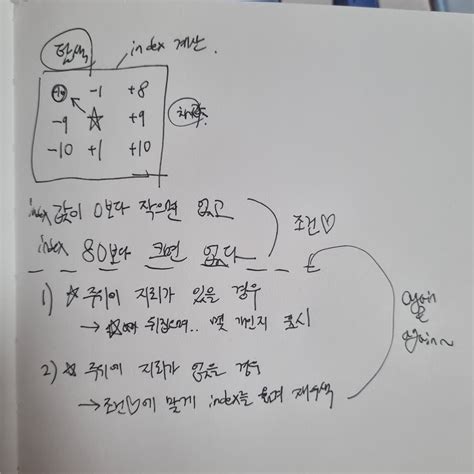 탐색 index 계산.
-1 +8
-9 ☆ +9
-10 +1 +10
index 값이 0보다 작으면 없고
index 80보다 크면 없다
조건♡
1) ☆ 주위에 지뢰가 있을 경우
→ 뒤집으며.. 몇 개인지 표시
2) ☆ 주위에 지뢰가 없을 경우
→ 조건♡에 맞게 index를 옮겨 재수색
again
again~